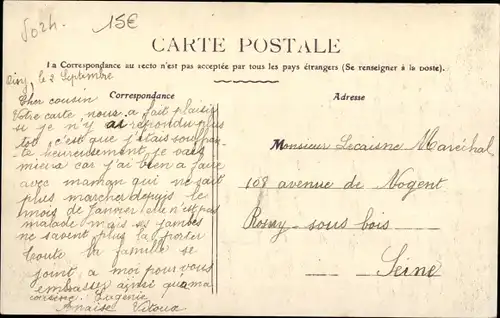 5024.
15€
CARTE POSTALE
La Correspondance au recto n'est pas acceptée par tous les pays étrangers (Se renseigner à la poste).
le 2 Septembre
Correspondance
Adresse
Cher cousin
Votre carte nous a fait plaisir
si je n'y ai repondu plus
tot c'est que j'etais souffran
te heureusement je vais
mieux car j'ai bien a faire
avec maman qui ne fait
plus marcher depuis le
mois de Janvier elle n'est pas
malade mais ses jambes
ne savent plus la porter
toute la famille se
joint a moi pour vous
embrasser ainsi que ma
cousine Eugenie
Anaise Vitoux
Monsieur Lecaisne Maréchal
108 avenue de Nogent
Rosny - sous bois
Seine